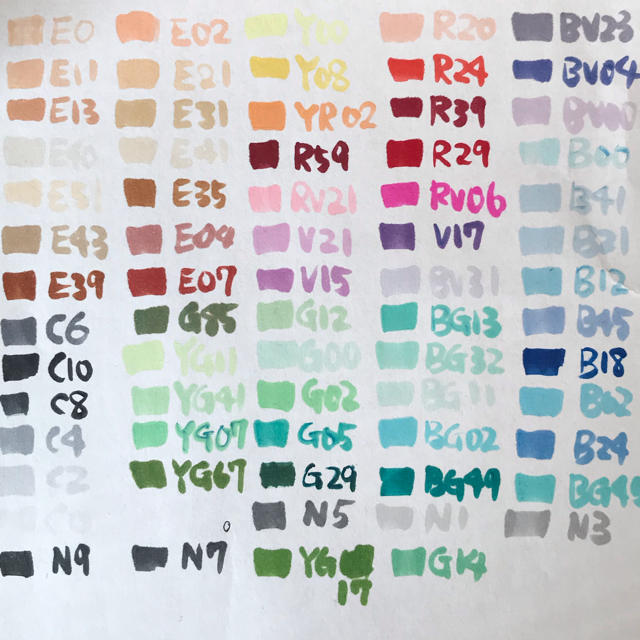 E0 E02 Y00 R20 BV23
E11 E21 Y08 R24 BV04
E13 E31 YR02 R39 BV00
E40 E41 R59 R29 B00
E51 E35 RV21 RV06 B41
E43 E04 V21 V17 B21
E39 E07 V15 BV31 B12
C6 G85 G12 BG13 B45
C10 YG11 G00 BG32 B18
C8 YG41 G02 BG11 B02
C4 YG07 G05 BG02 B24
C2 YG67 G29 BG49
C0 N5 N1 N3
N9 N7 YG G14
17